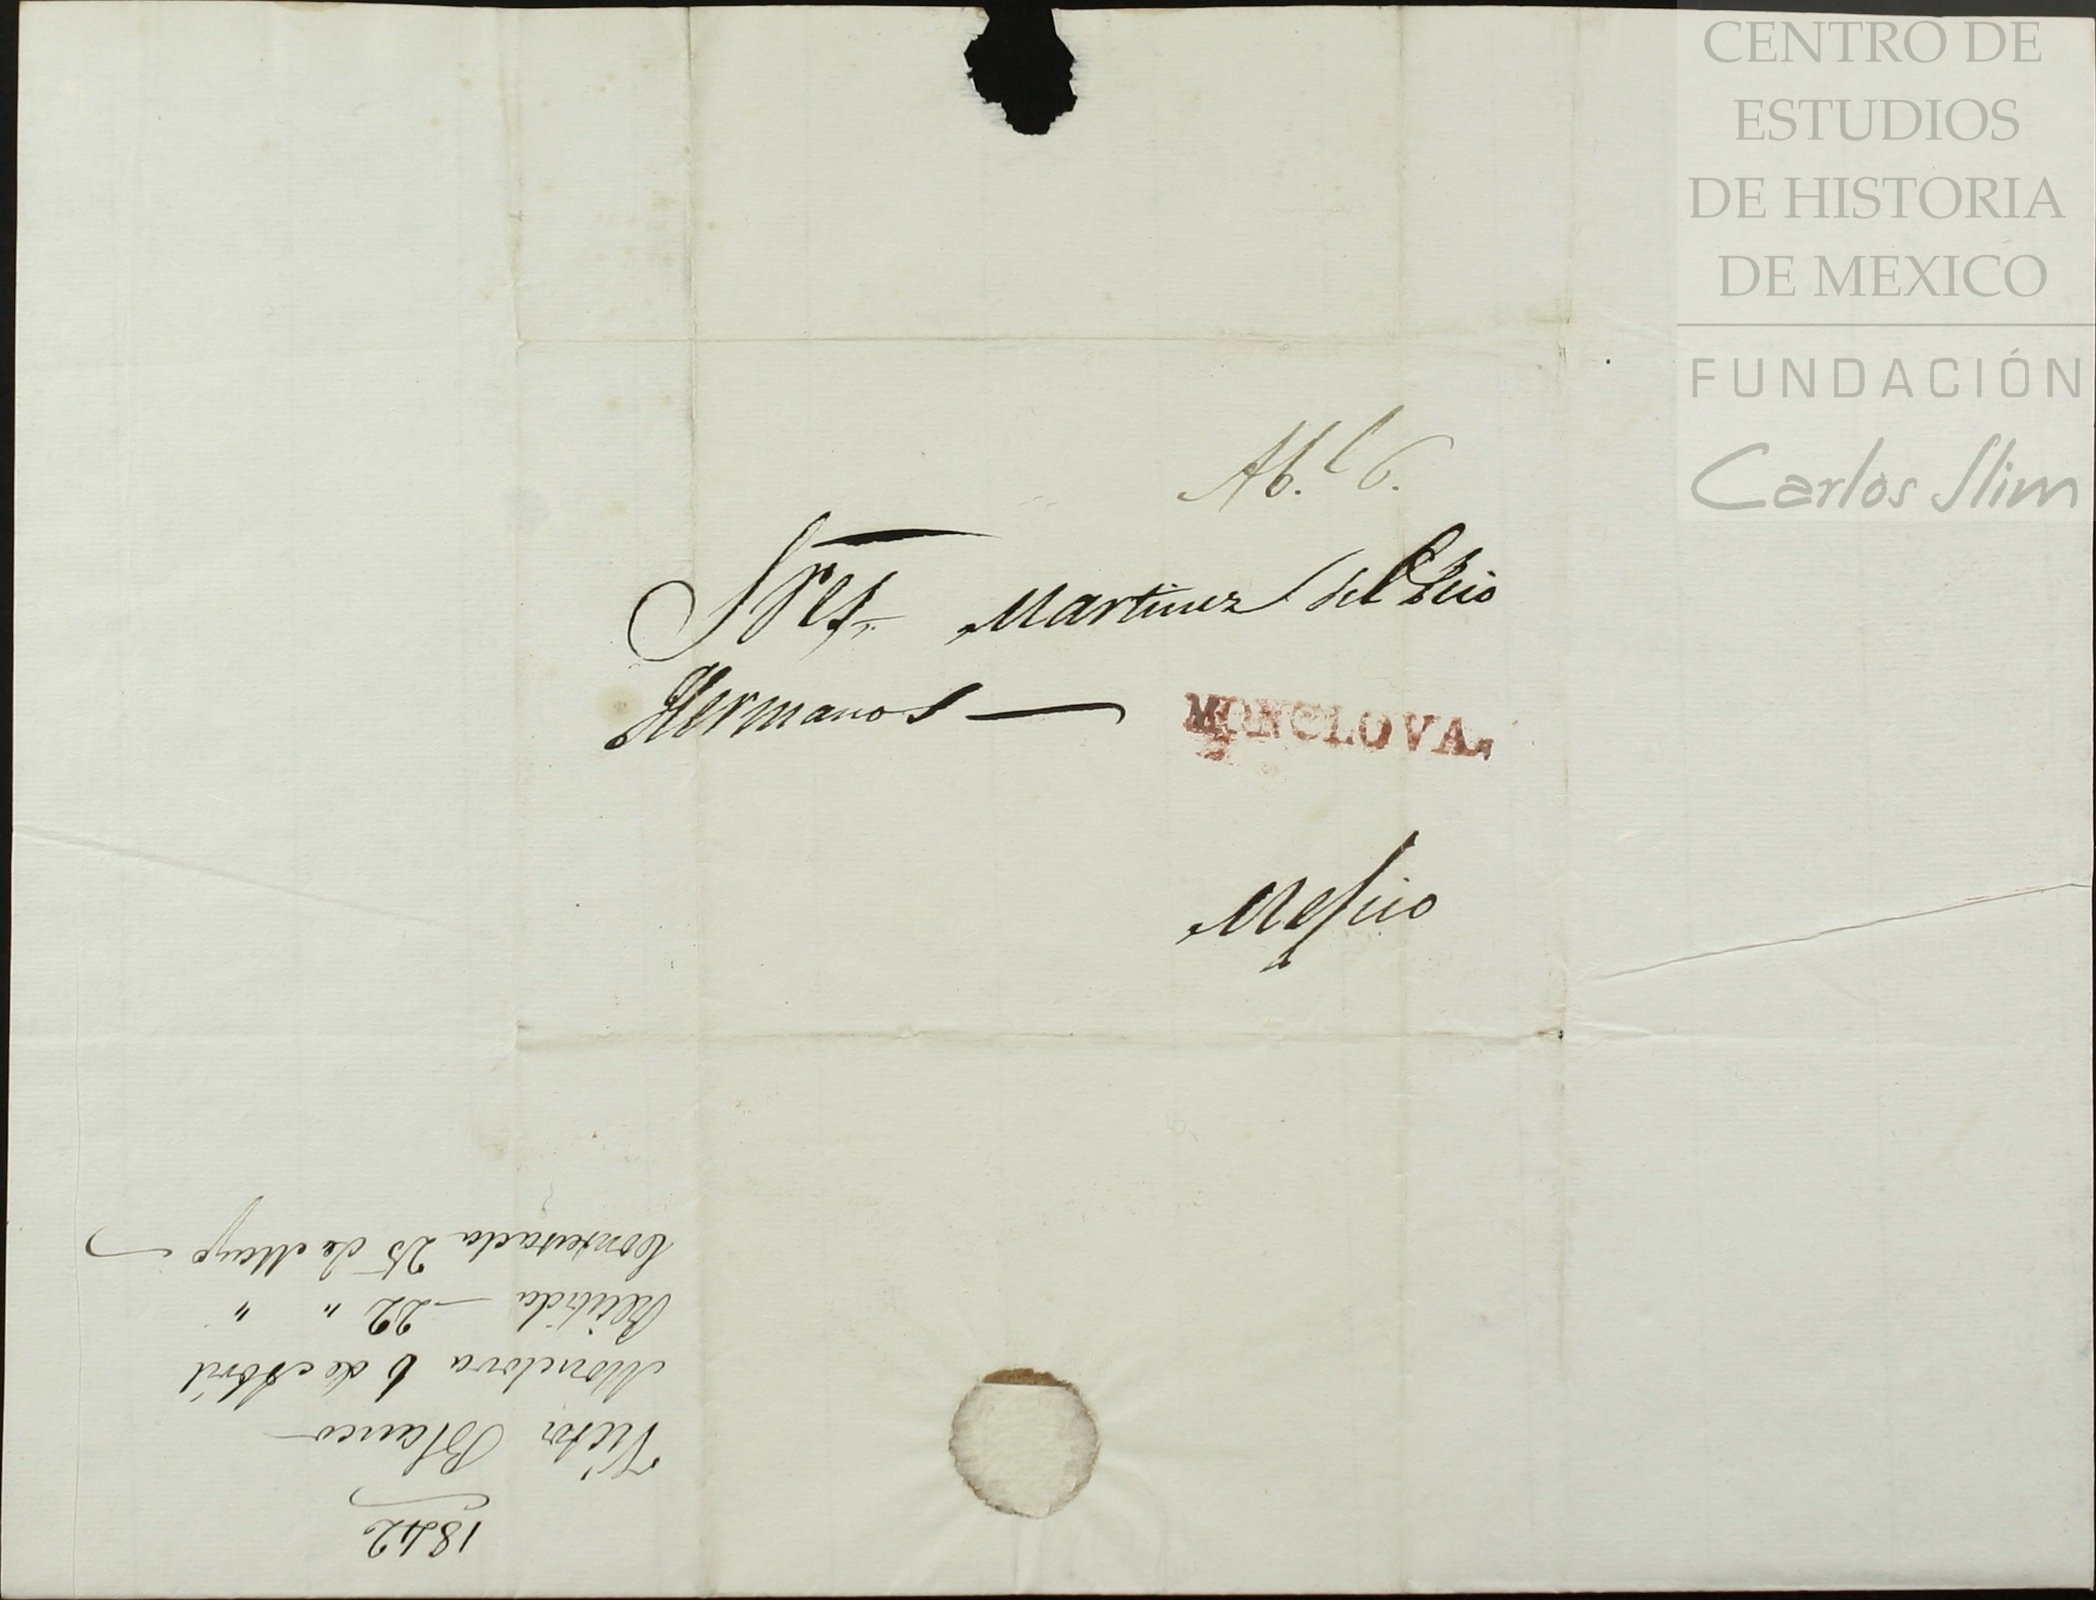 CENTRO DE
ESTUDIOS
DE HISTORIA
DE MEXICO
FUNDACIÓN
Carlos Slim
Ab.l 6.
Sres. Martinez del Rio
Hermanos
MONCLOVA.
Mejico
1842
Victor Blanco
Monclova 6 de Abril
Recibida 22 " "
Contestada 25 de Mayo